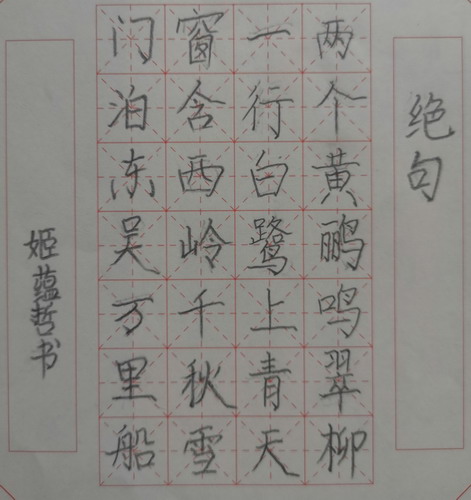 绝句
两个黄鹂鸣翠柳
一行白鹭上青天
窗含西岭千秋雪
门泊东吴万里船
姬蕴哲书